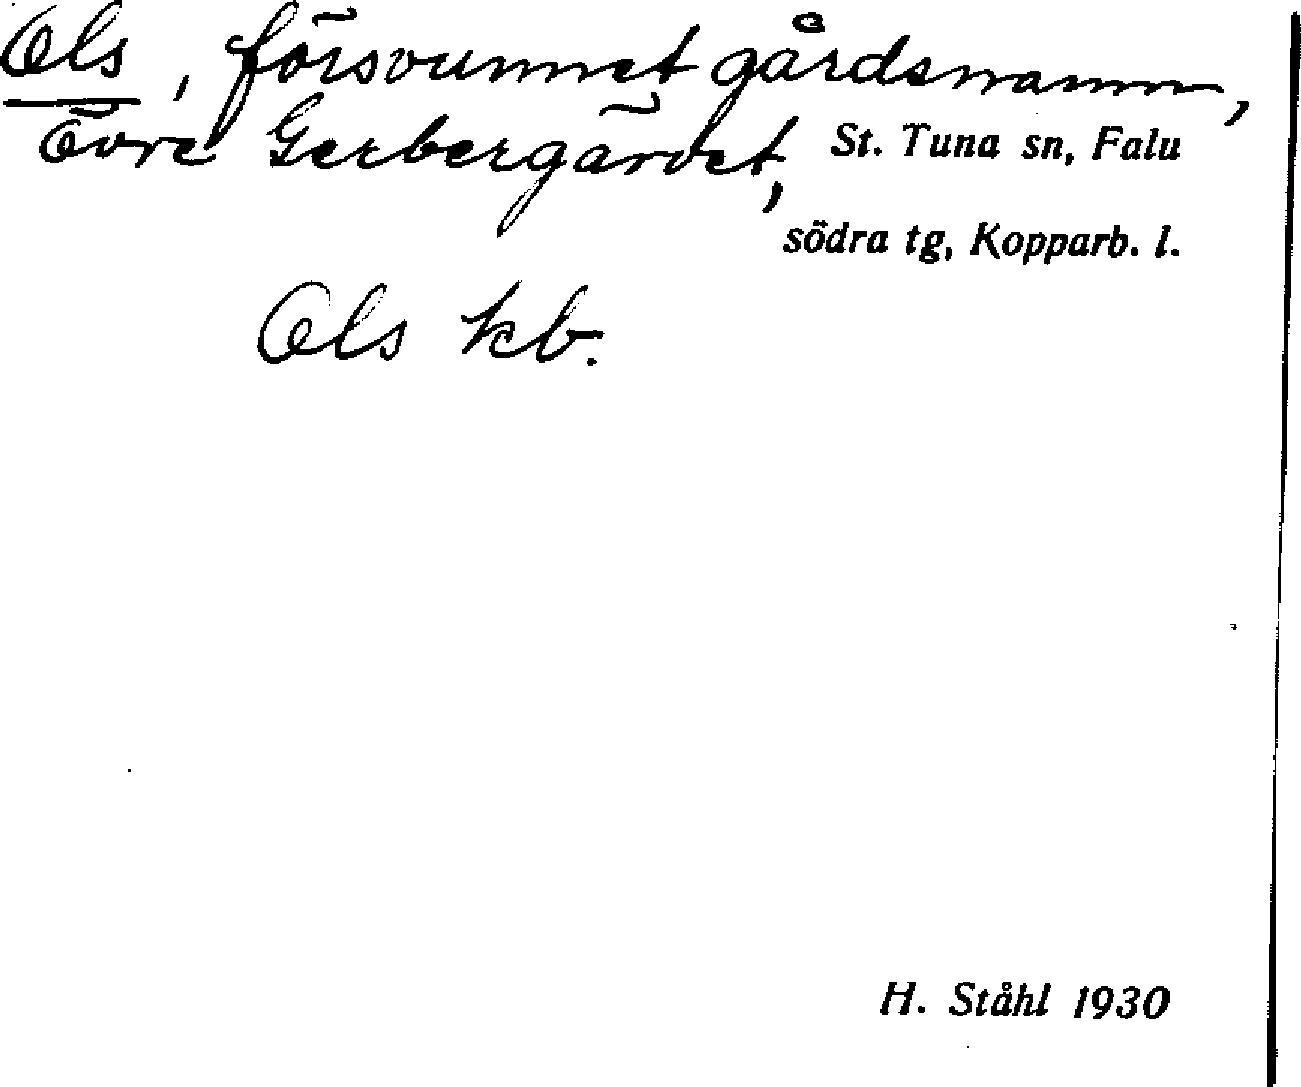 Ols, försvunnet gårdsnamn,
Övre Gerbergärdet, St. Tuna sn, Falu
södra tg, Kopparb. l.
Ols kb.
H. Ståhl 1930